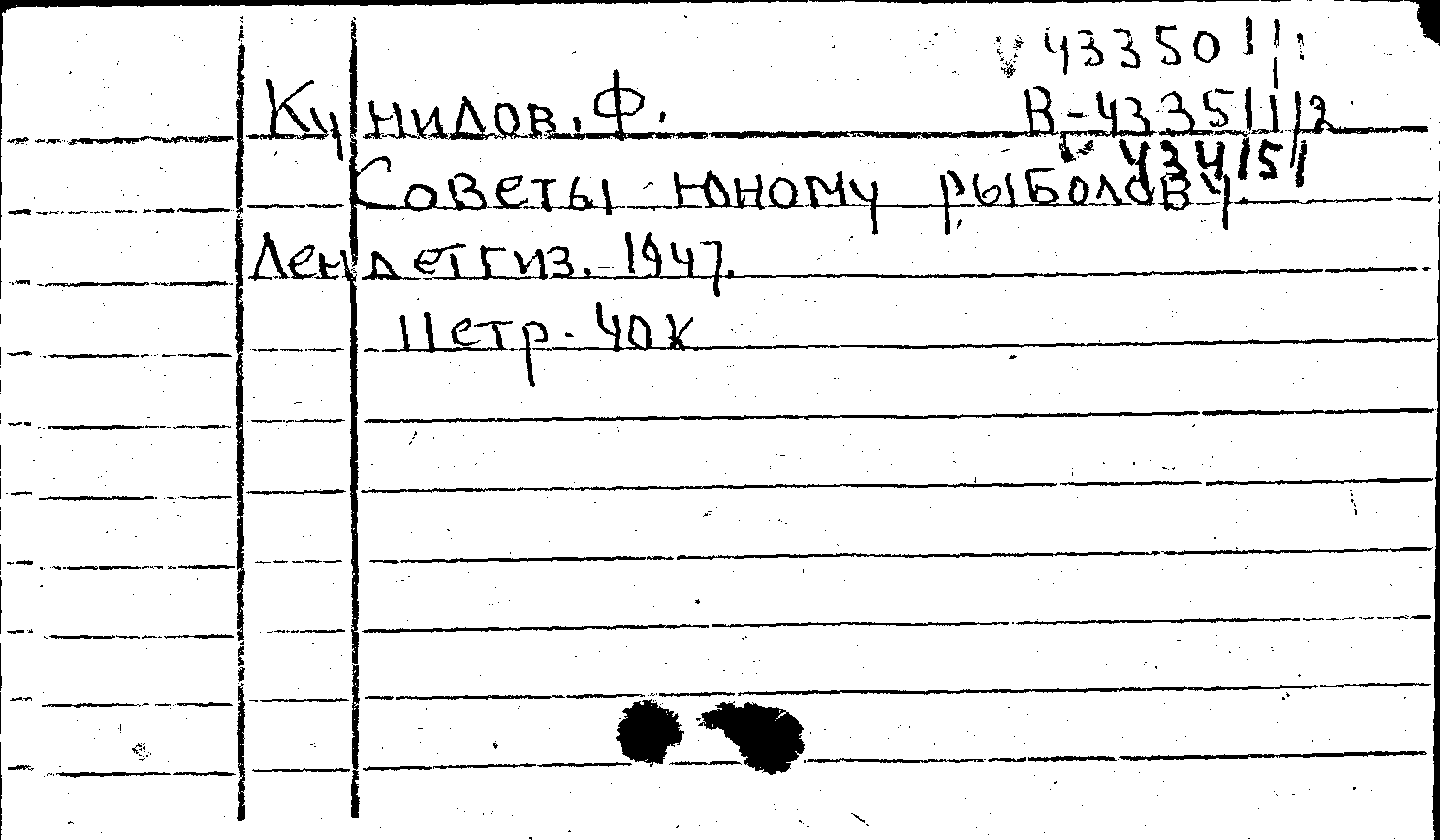 43350
Кунилов, Ф.
В-43351/2
Советы юному рыболову.
Лендетгиз. 1947.
40к